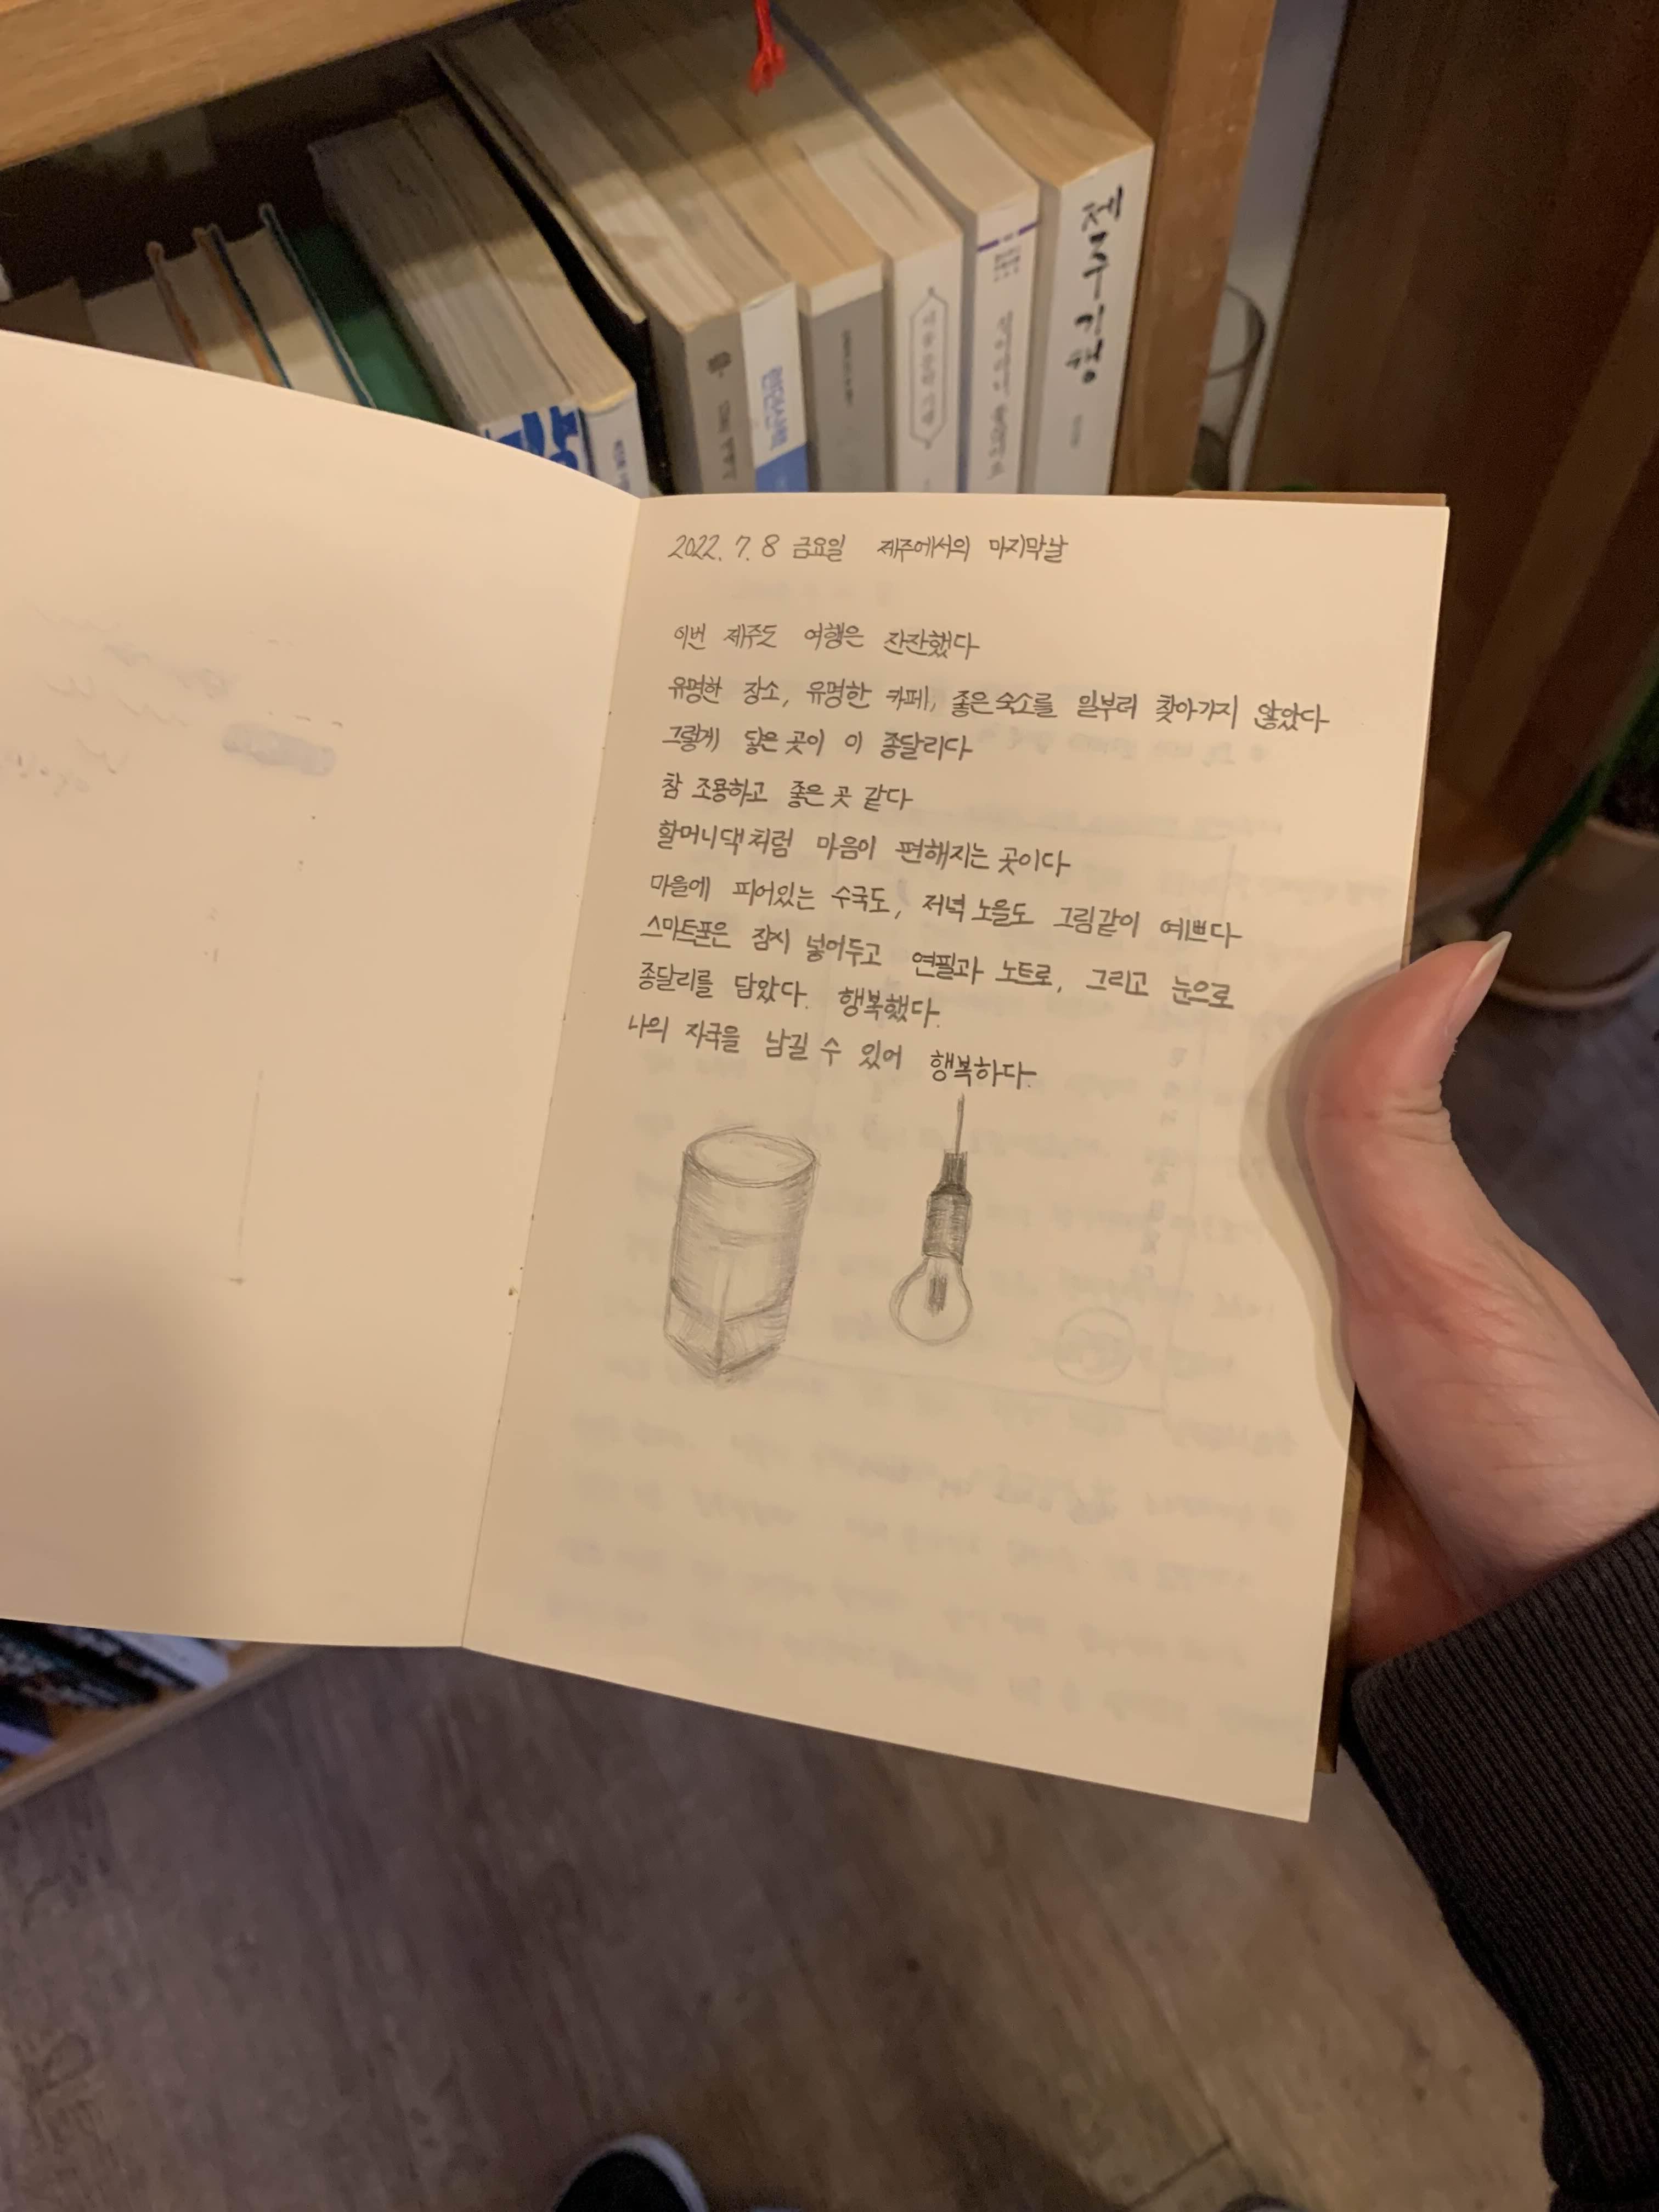 제주기행
한단산책
2022. 7. 8 금요일 제주에서의 마지막날
이번 제주도 여행은 잔잔했다
유명한 장소, 유명한 카페, 좋은 숙소를 일부러 찾아가지 않았다
그렇게 닿은 곳이 이 종달리다
참 조용하고 좋은 곳 같다
할머니댁처럼 마음이 편해지는 곳이다
마을에 피어있는 수국도, 저녁 노을도 그림같이 예쁘다
스마트폰은 잠시 넣어두고 연필과 노트로, 그리고 눈으로
종달리를 담았다. 행복했다.
나의 자국을 남길 수 있어 행복하다.